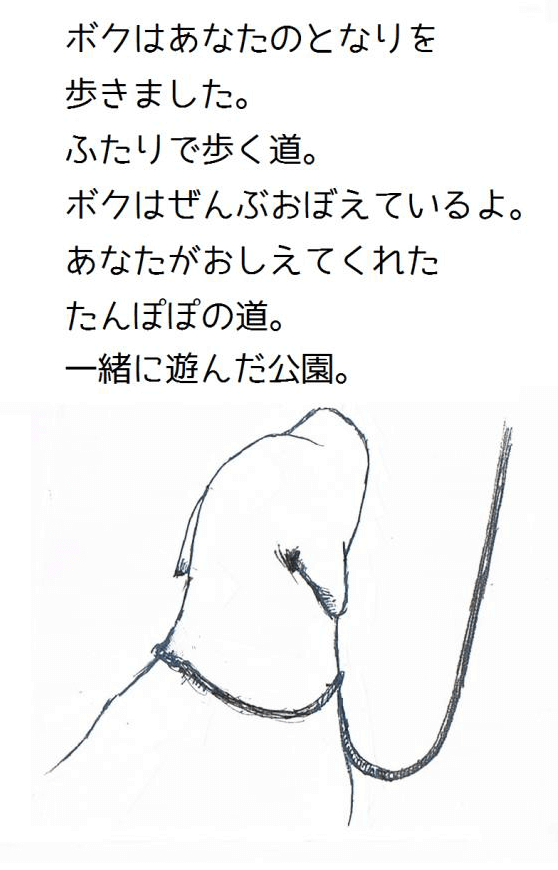 ボクはあなたのとなりを
歩きました。
ふたりで歩く道。
ボクはぜんぶおぼえているよ。
あなたがおしえてくれた
たんぽぽの道。
一緒に遊んだ公園。